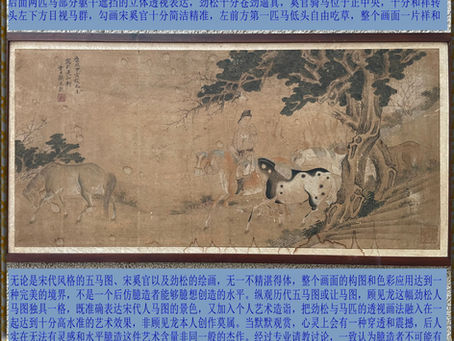 后面两匹马部分躯干遮挡的立体透视表达,劲松十分苍劲逼真,奚官骑马位于正中央,十分和祥转
头左下方目视马群,勾画宋奚官十分简洁精准,左前方第一匹马低头自由吃草,整个画面一片祥和
无论是宋代风格的五马图、宋奚官以及劲松的绘画,无一不精湛得体,整个画面的构图和色彩应用达到一
种完美的境界,不是一个后仿臆造者能够臆想创造的水平。纵观历代五马图或让马图,顾见龙这幅劲松人
马图独具一格,既准确表达宋代人马图的景色,又加入个人艺术造诣,把劲松与马匹的透视画法融入在一
起达到十分高水准的艺术效果,非顾见龙本人创作莫属。当默默观赏,心灵上会有一种穿透和震撼,后人
实在无法有灵感和水平创造这件艺术含量非同一般的杰作。经过专业请教讨论,一致认为臆造者不可能有